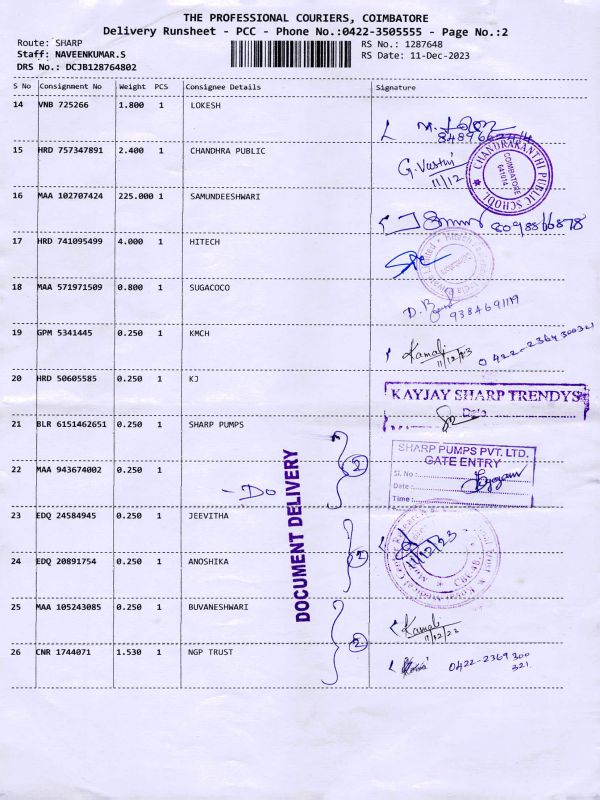 THE PROFESSIONAL COURIERS, COIMBATORE
Delivery Runsheet - PCC - Phone No.:0422-3505555 - Page No.:2
Route: SHARP
RS No.: 1287648
Staff: NAVEENKUMAR.S
RS Date: 11-Dec-2023
DRS No.: DCJB128764802
S No Consignment No Weight PCS Consignee Details Signature
14 VNB 725266 1.800 1 LOKESH
15 HRD 757347891 2.400 1 CHANDHRA PUBLIC
G. Vasthi
11/12
CHANDRAKANTHI PUBLIC SCHOOL
COIMBATORE
641014
16 MAA 102707424 225.000 1 SAMUNDEESHWARI
17 HRD 741095499 4.000 1 HITECH
18 MAA 571971509 0.800 1 SUGACOCO
9384691119
19 GPM 5341445 0.250 1 KMCH
Kamali
11/12/23
0422-2369 300321
20 HRD 50605585 0.250 1 KJ
KAYJAY SHARP TRENDYS
Date
21 BLR 6151462651 0.250 1 SHARP PUMPS
2
SHARP PUMPS PVT. LTD.
GATE ENTRY
Sl. No :
Date :
Time :
22 MAA 943674002 0.250 1
- Do
DOCUMENT DELIVERY
23 EDQ 24584945 0.250 1 JEEVITHA
2
11/12/23
24 EDQ 20891754 0.250 1 ANOSHIKA
25 MAA 105243085 0.250 1 BUVANESHWARI
2
Kamali
11/12/23
26 CNR 1744071 1.530 1 NGP TRUST
0422-2369 300
321